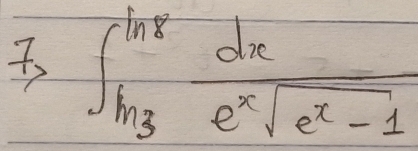 7, ∫_{ln3}^{ln8} dx / (e^x √(e^x − 1))